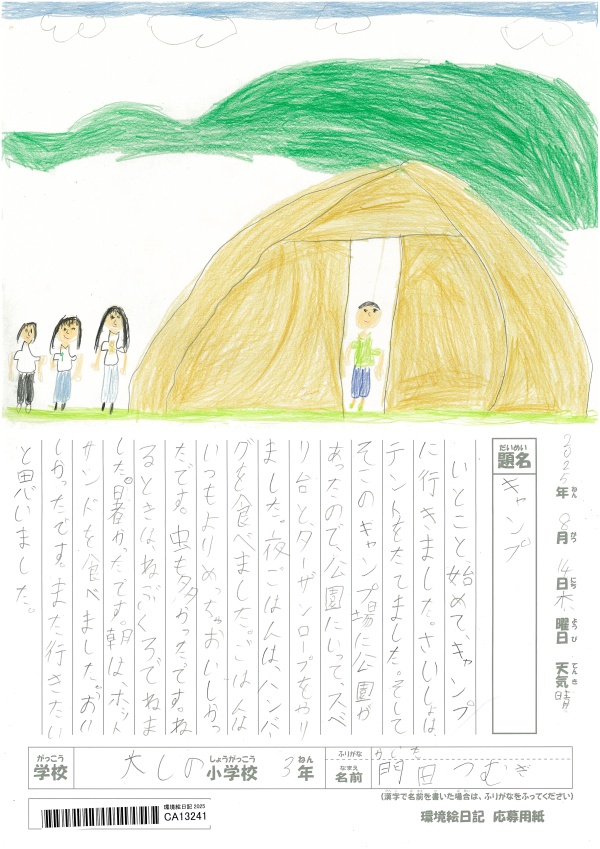 2025年ねん 8月がつ 14日にち 木曜日ようび 天気てんき 晴
題名だいめい
キャンプ
いとこと始めて、キャンプ
に行きました。さいしょは、
テントをたてました。そして
そこのキャンプ場に公園が
あったので、公園にいって、スベ
リ台と、ターザンロープをやり
ました。夜ごはんは、ハンバー
グを食べました。ごはんは
いつもよりめっちゃおいしかっ
たです。虫も多かったです。ね
るときはねぶくろでねま
した。暑かったです。朝はホット
サンドを食べました。おい
しかったです。また行きたい
と思いました。
がっこう しょうがっこう ねん
学校 大しの小学校 3年
ふりがな
なまえ
名前 門田つむぎ
(漢字で名前を書いた場合は、ふりがなをふってください)
環境絵日記 応募用紙
環境絵日記 2025
CA13241